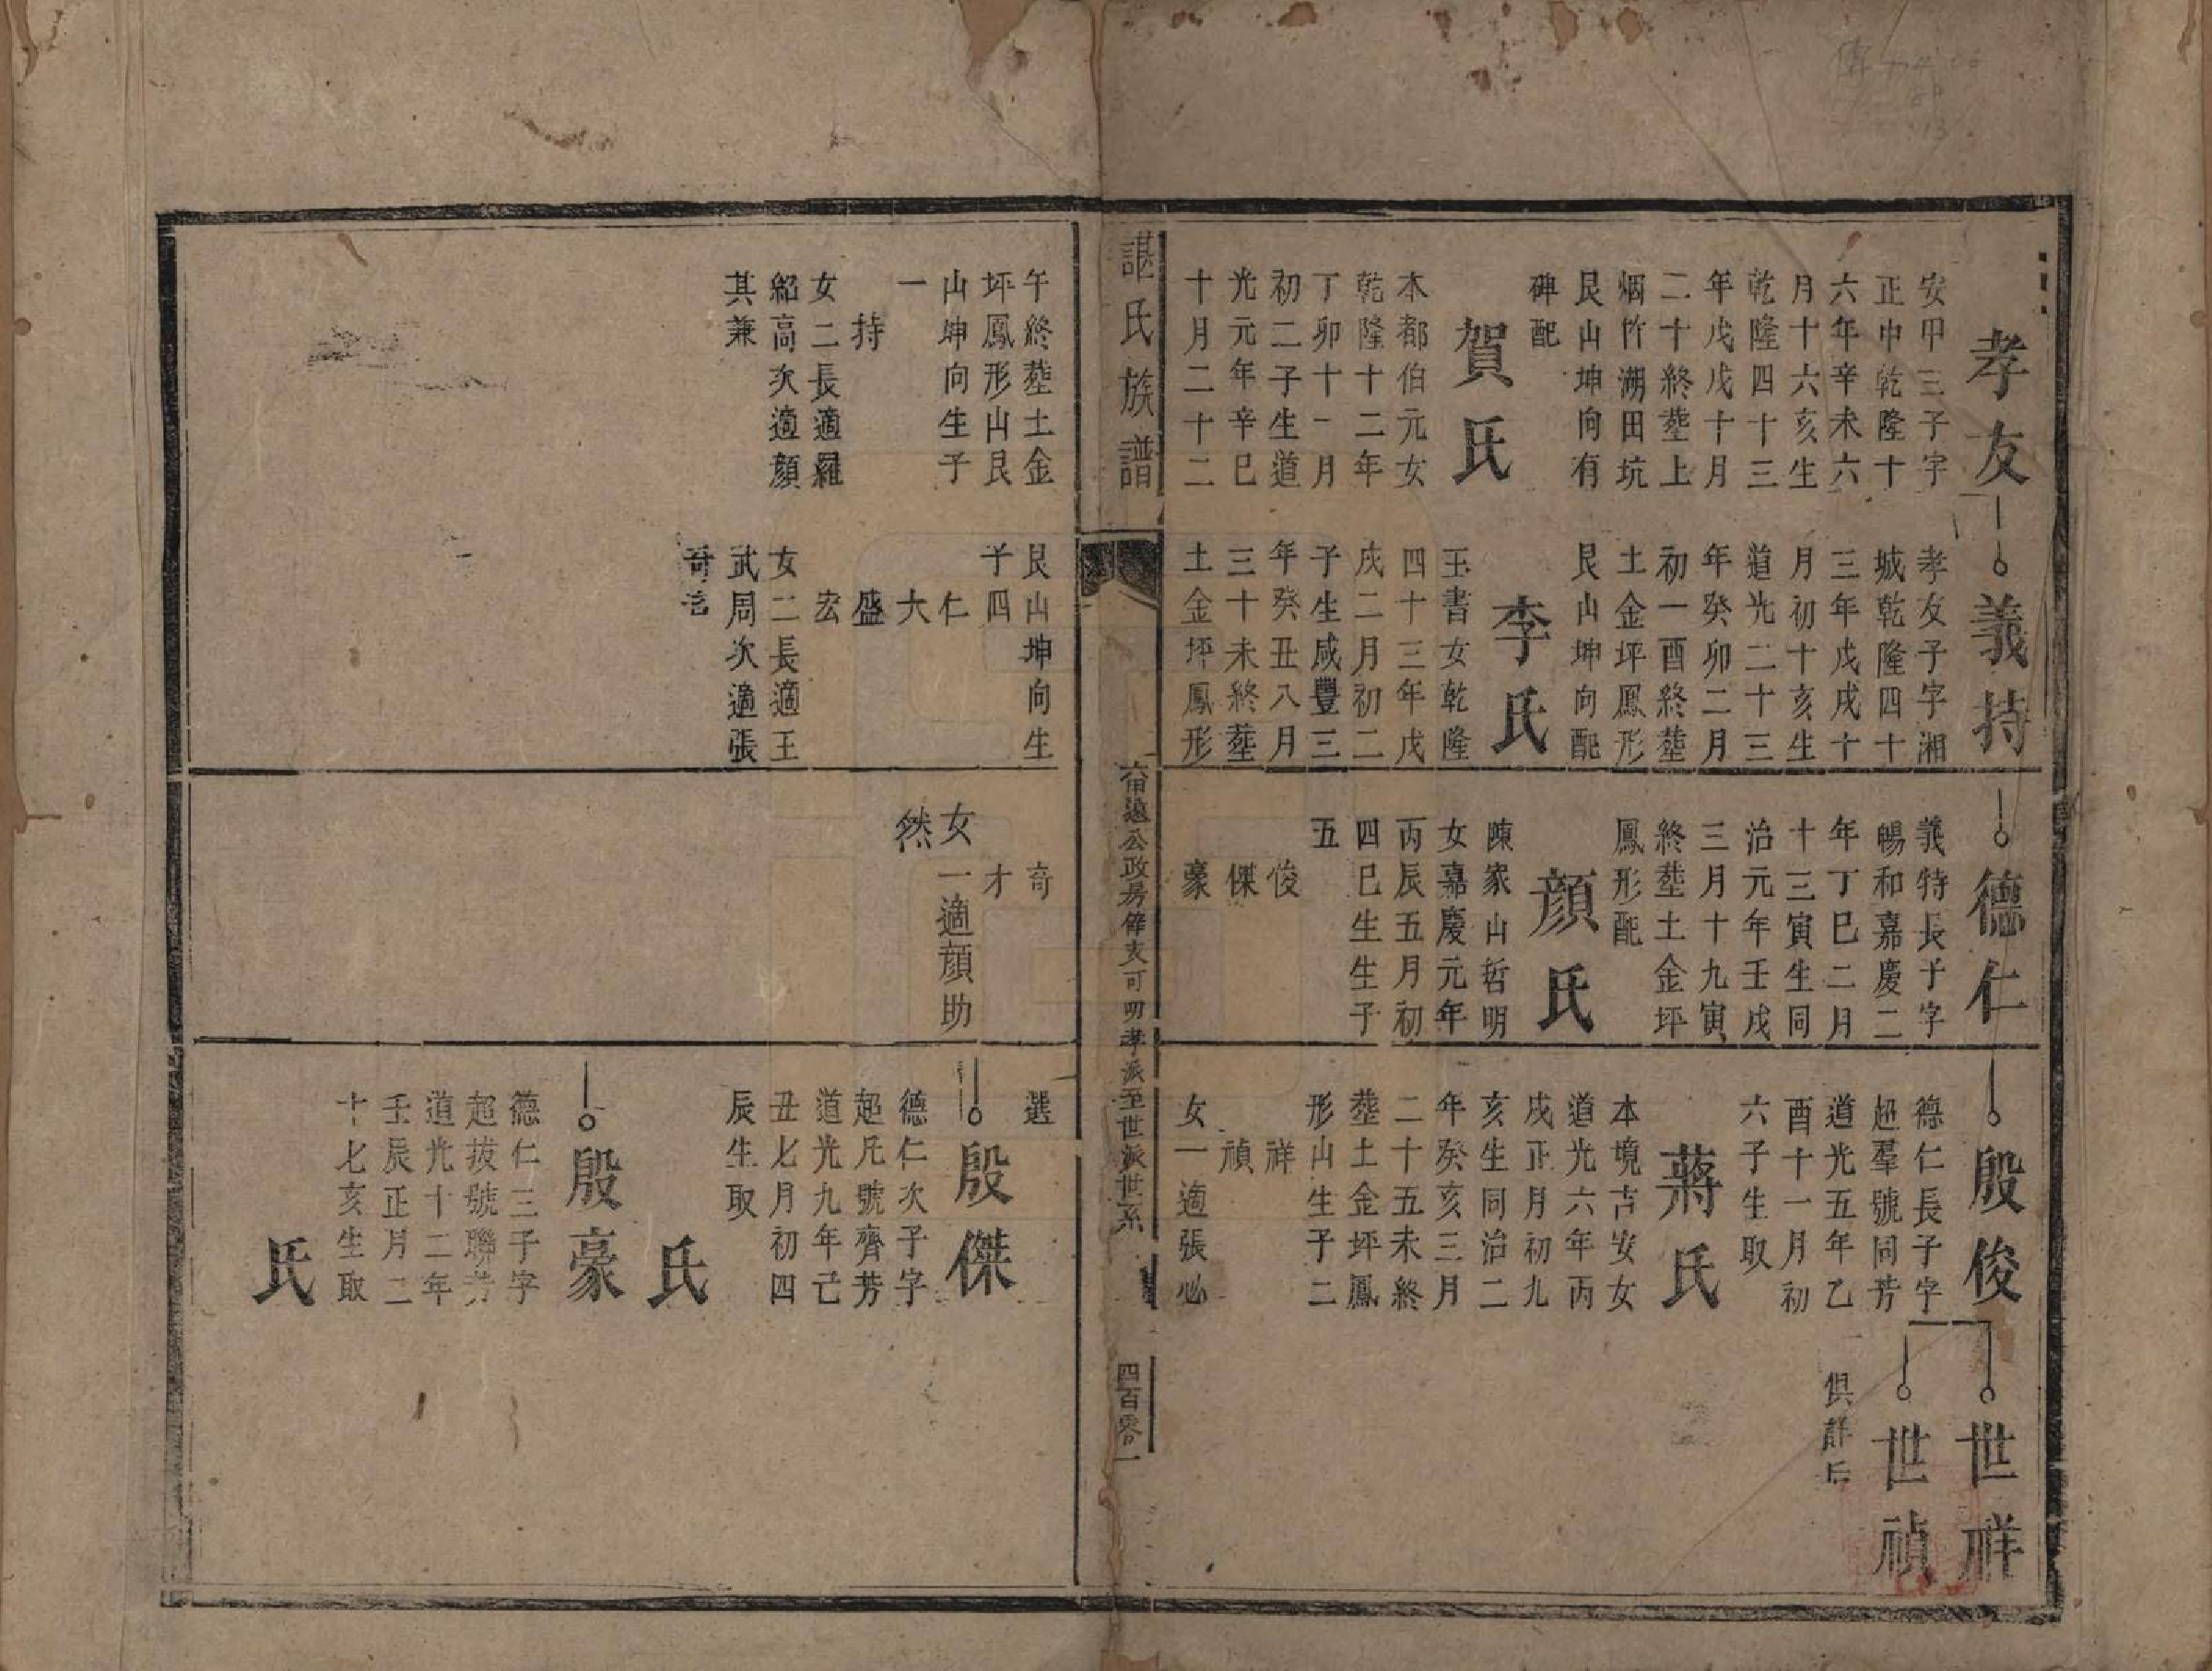 孝友
安甲三子字
正中乾隆十
六年辛未六
月十六亥生
乾隆四十三
年戊戌十月
二十終塟上
烟竹湖田坑
艮山坤向有
碑配
賀氏
本都伯元女
乾隆十二年
丁卯十一月
初二子生道
光元年辛巳
十月二十二
義持
孝友子字湘
城乾隆四十
三年戊戌十
月初十亥生
道光二十三
年癸卯二月
初一酉終塟
土金坪鳳形
艮山坤向配
李氏
玉書女乾隆
四十三年戊
戌二月初二
子生咸豐三
年癸丑八月
三十未終塟
土金坪鳳形
德仁
義特長子字
暢和嘉慶二
年丁巳二月
十三寅生同
治元年壬戌
三月十九寅
終塟土金坪
鳳形配
顏氏
陳家山哲明
女嘉慶元年
丙辰五月初
四巳生生子
五
俊
傑
豪
殷俊
德仁長子字
超羣號同芳
道光五年乙
酉十一月初
六子生取
蔣氏
本境古安女
道光六年丙
戌正月初九
亥生同治二
年癸亥三月
二十五未終
塟土金坪鳳
形山生子二
祥
禎
女一適張必
世祥
世禎
俱詳后
諶氏族譜
公政房偉支可明孝派至世派世系
四百零一
午終塟土金
坪鳳形山艮
山坤向生子
一
持
女二長適羅
紹高次適顏
其兼
艮山坤向生
子四
仁
大
盛
宏
女二長適王
武周次適張
奇
才
女一適顏助
然
選
殷傑
德仁次子字
超凡號齊芳
道光九年己
丑七月初四
辰生取
氏
殷豪
德仁三子字
超拔號聯芳
道光十二年
壬辰正月二
十七亥生取
氏